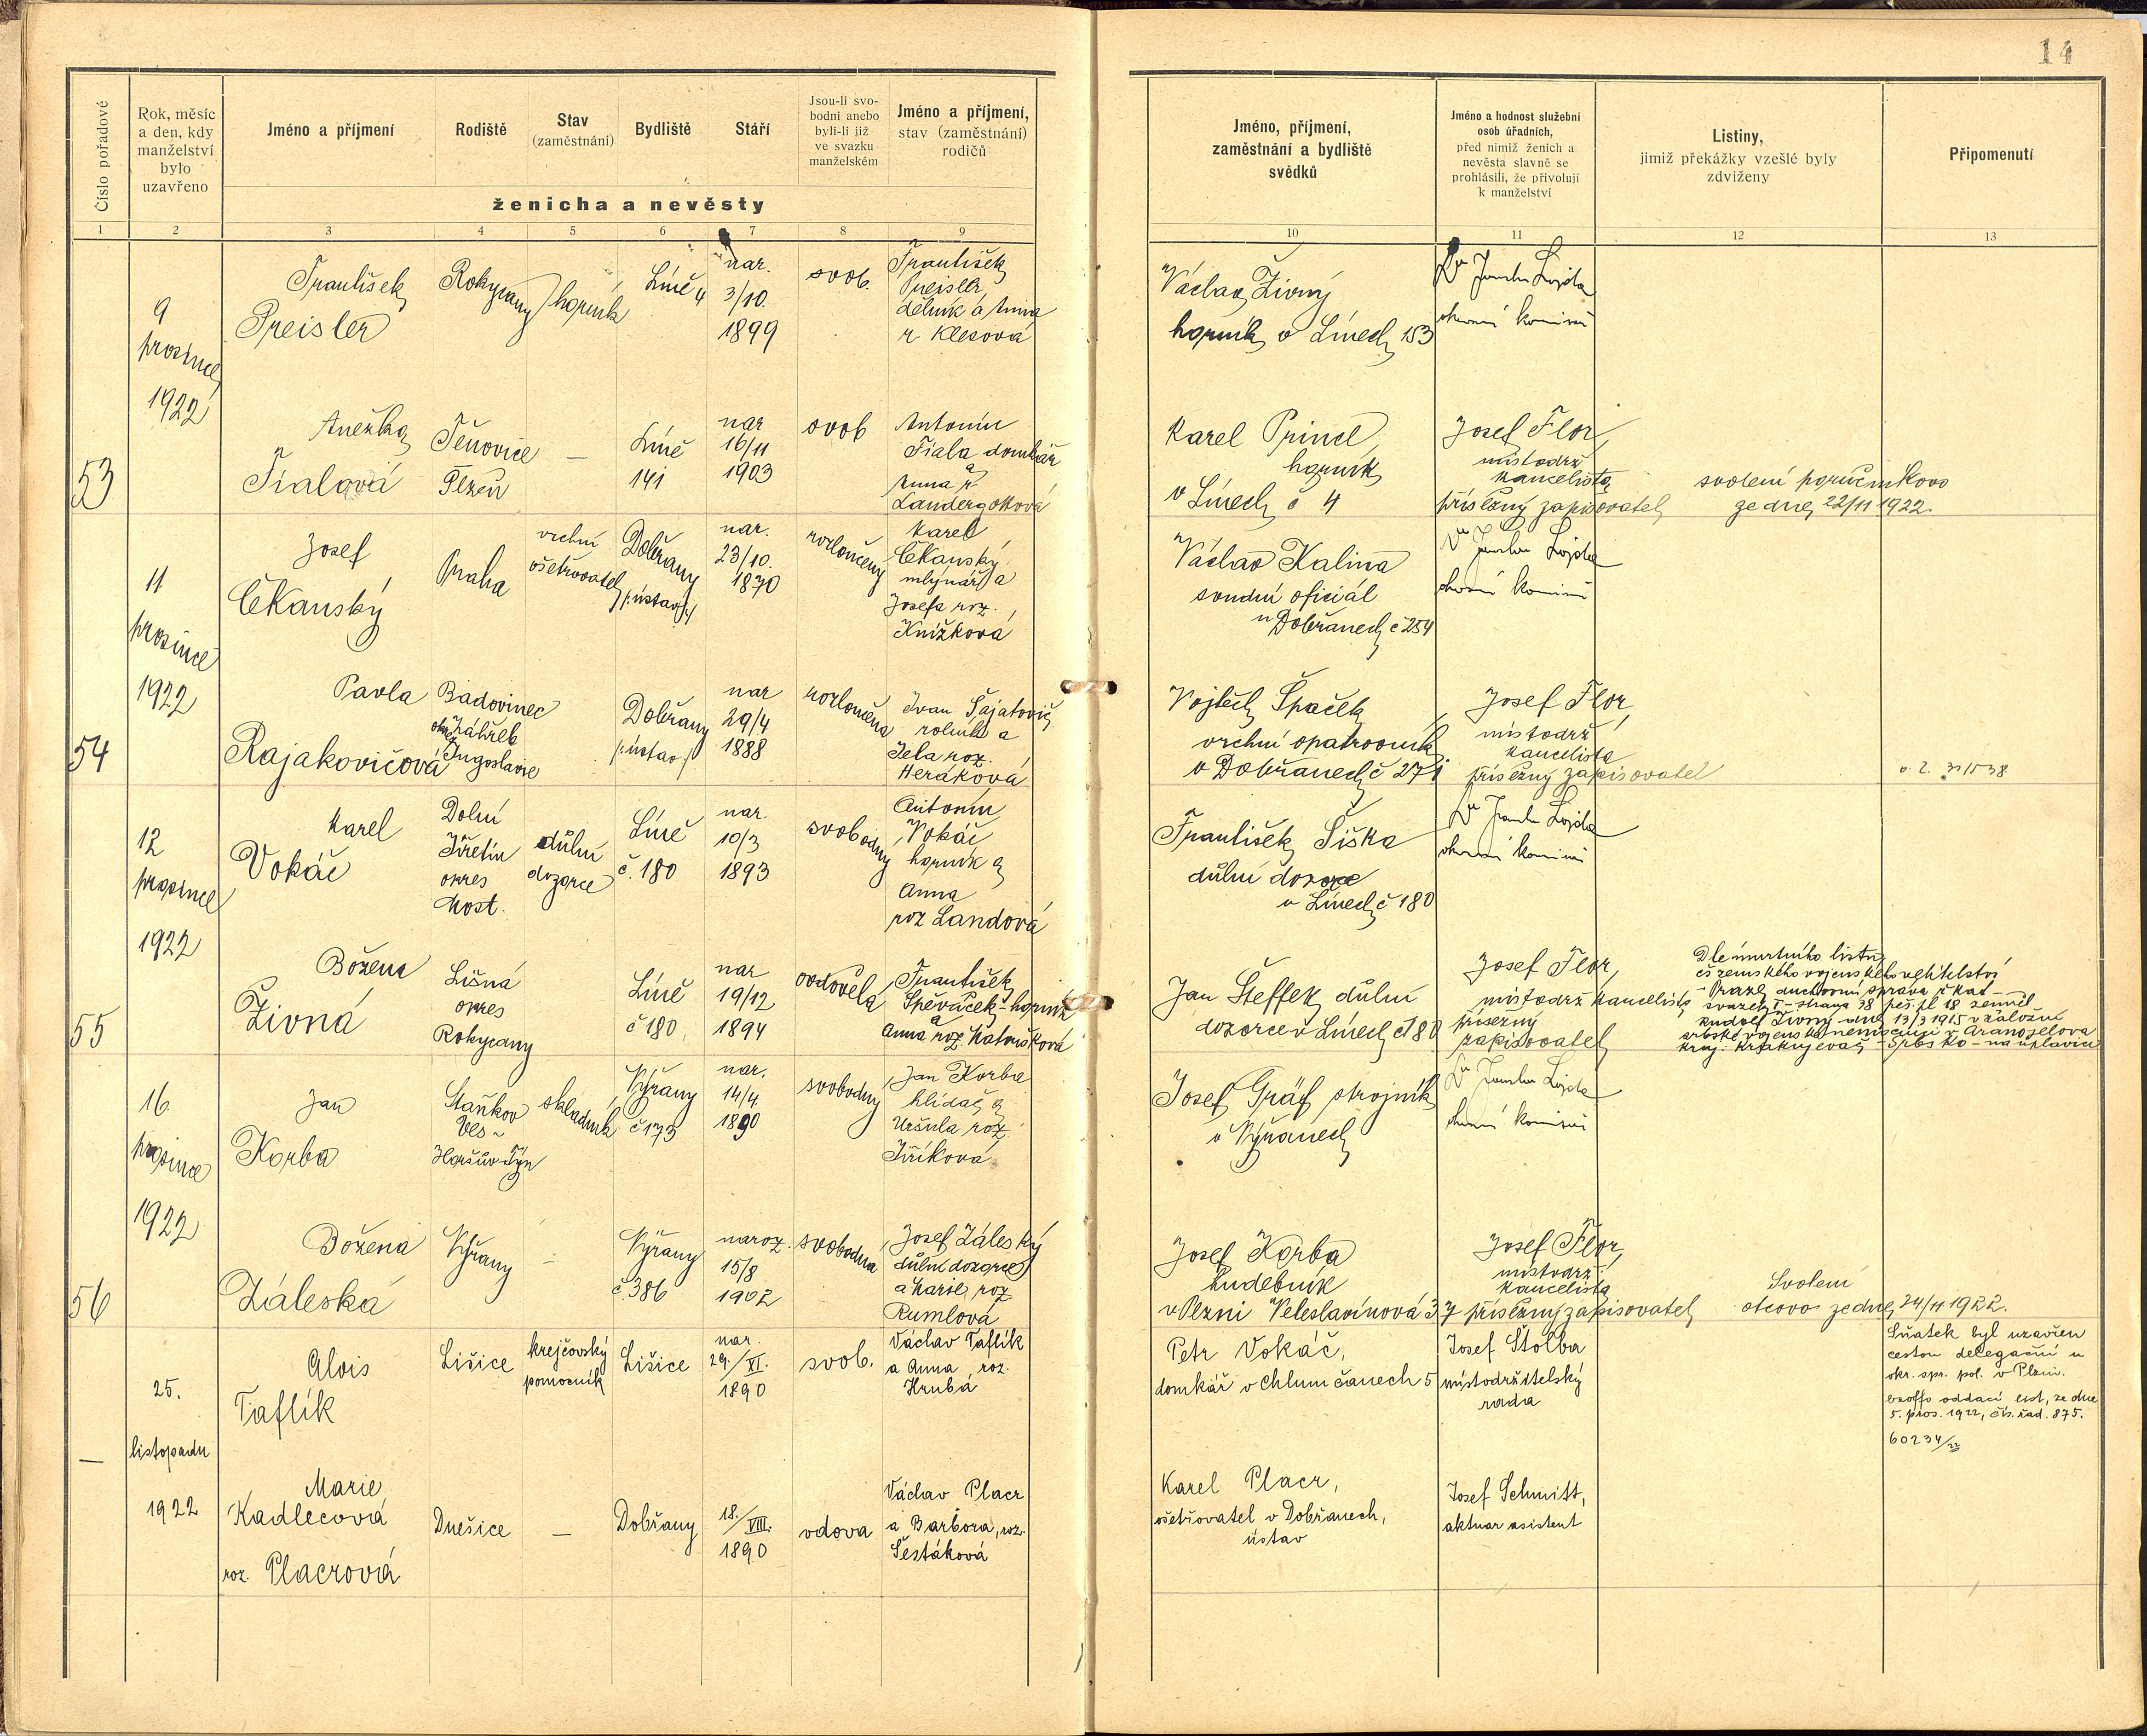 14
Číslo pořadové
Rok, měsíc
a den, kdy
manželství
bylo
uzavřeno
Jméno a příjmení
Rodiště
Stav
(zaměstnání)
Bydliště
Stáří
Jsou-li svo-
bodni anebo
byli-li již
ve svazku
manželském
Jméno a příjmení,
stav (zaměstnání)
rodičů
ženicha a nevěsty
Jméno, příjmení,
zaměstnání a bydliště
svědků
Jméno a hodnost služební
osob úřadních,
před nimiž ženich a
nevěsta slavně se
prohlásili, že přivolují
k manželství
Listiny,
jimiž překážky vzešlé byly
zdviženy
Připomenutí
1 2 3 4 5 6 7 8 9 10 11 12 13
53
9
prosince
1922
František
Preisler
Rokycany
horník
Líně 4
nar.
3/10.
1899
svob.
František
Preisler,
dělník a Anna
r. Klesová
Václav Živný
horník v Línech 153
Dr
Anežka
Fialová
Těnovice
Plzeň
—
Líně
141
nar
16/11
1903
svob
Antonín
Fiala domkář
a
Anna r.
Landergottová
Karel Princl
horník
v Línech č 4
Josef Flor,
místodrž
kancelista
přísežný zapisovatel
svolení poručenskovo
ze dne 22/11 1922.
54
11
prosince
1922
Josef
Čkanský
Praha
vrchní
ošetřovatel
Dobřany
/ústav/
nar.
23/10.
1870
rozloučený
Karel
Čkanský
mlynář a
Josefa roz.
Knížková
Václav Kalina
soudní oficiál
v Dobřanech č 254
Dr
Pavla
Rajakovičová
Badovinec
okres Záhřeb
Jugoslavie
Dobřany
/ústav/
nar
29/4
1888
rozloučena
Ivan Šajatovič
rolník a
Jela roz.
Heraková
Vojtěch Špaček,
vrchní opatrovník
v Dobřanech č 271
Josef Flor,
místodrž
kancelista
přísežný zapisovatel
55
12
prosince
1922
Karel
Vokáč
Dolní
Jiřetín
okres
Most.
důlní
dozorce
Líně
č. 180
nar.
10/3
1893
svobodný
Antonín
Vokáč
horník a
Anna
roz Landová
František Šiška
důlní dozorce
v Línech č 180
Dr
Božena
Živná
Lišná
okres
Rokycany
Líně
č 180
nar
19/12
1894
ovdověla
František
Spěváček - horník
a
Anna roz. Katoušková
Jan Šteffek důlní
dozorce v Línech č 180
Josef Flor,
místodrž kancelista
přísežný
zapisovatel
Dle úmrtního listu
čs zemského vojenského velitelství
v Praze, duchovní správa ř kat -
svazek I - strana 38 pěš. pl 18 zemřel
Rudolf Živný dne 13/3 1915 v záložní
srbské vojenské nemocnici v Arangjelova
kraj: Kragujevač - Srbsko - na úplavici
56
16.
prosince
1922
Jan
Korba
Staňkov
Ves -
Horšův Týn
skladník
Nýřany
č 173
nar.
14/4
1890
svobodný
Jan Korba
hlídač a
Uršula roz.
Jiříková
Josef Gräf strojník
v Nýřanech
Dr
Božena
Záleská
Nýřany
—
Nýřany
č. 386
naroz.
15/8
1902
svobodná
Josef Záleský
důlní dozorce
a Marie roz
Rumlová
Josef Korba
hudebník
v Plzni Veleslavínová 37
Josef Flor,
místodrž
kancelista
přísežný zapisovatel
Svolení
otcovo ze dne 24/11 1922.
—
25.
listopadu
1922
Alois
Taflík
Lišice
krejčovský
pomocník
Lišice
nar.
29./XI.
1890
svob.
Václav Taflík
a Anna roz.
Hrubá
Petr Vokáč,
domkář v Chlumčanech 5
Josef Štolba
místodržitelský
rada
Sňatek byl uzavřen
cestou delegační u
okr. spr. pol. v Plzni.
exoffo oddací list, ze dne
5. pros. 1922, čís. řad. 875.
60234/22
Marie
Kadlecová
roz. Placrová
Dnešice
—
Dobřany
18./VIII.
1890
vdova
Václav Placr
a Barbora, roz.
Šestáková
Karel Placr,
ošetřovatel v Dobřanech,
ústav
Josef Schmitt,
aktuar. asistent